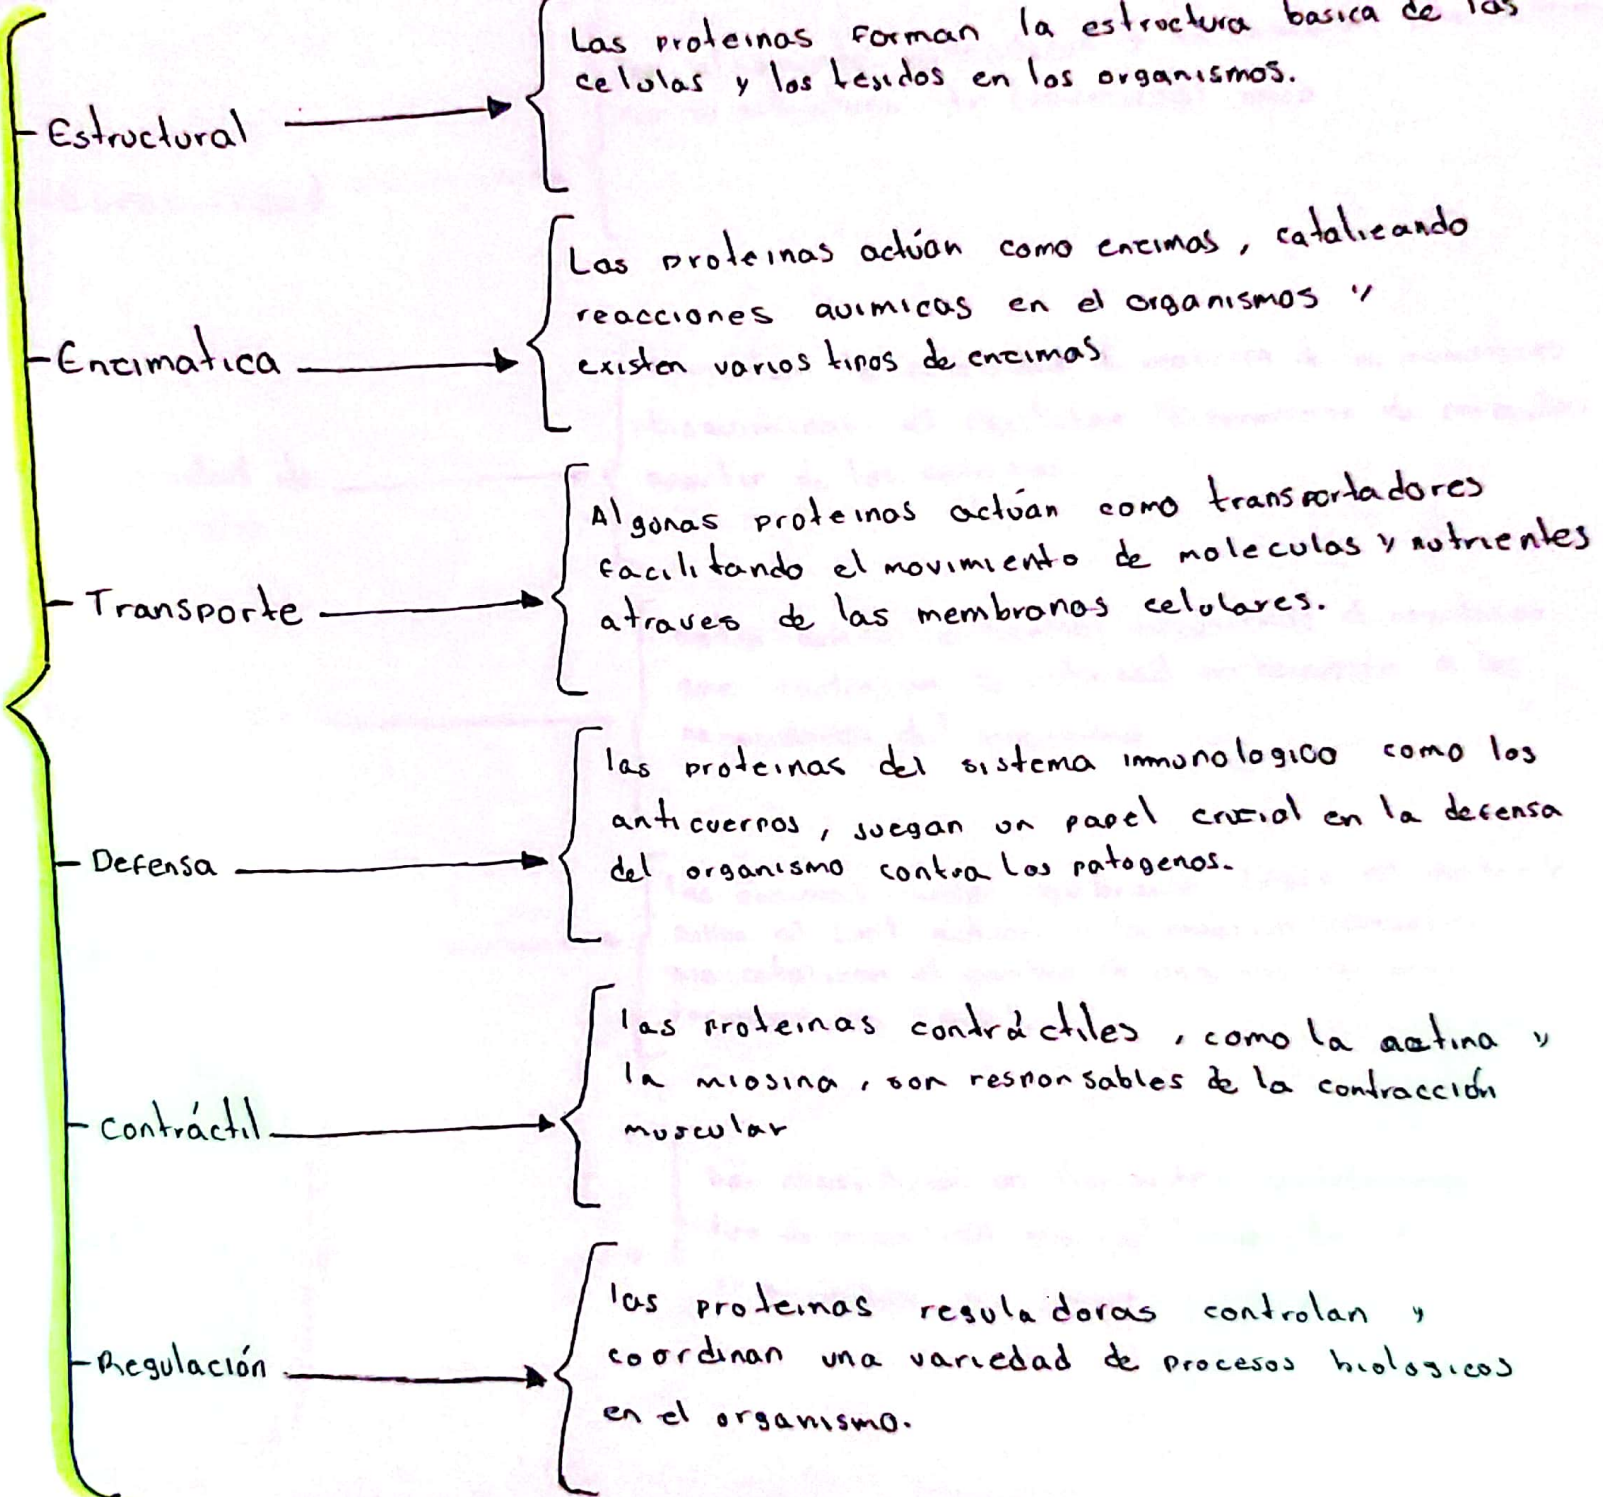 Las proteinas forman la estructura basica de las
celulas y los tesidos en los organismos.
Estructural
Las proteinas actúan como encimas, catalizando
reacciones quimicas en el organismos y
existen varios tipos de encimas
Encimatica
Algunas proteinas actúan como transportadores
facilitando el movimiento de moleculas y nutrientes
atraves de las membranas celulares.
Transporte
las proteinas del sistema inmunologico como los
anticuerpos, juegan un papel crucial en la defensa
del organismo contra los patogenos.
Defensa
las proteinas contráctiles, como la actina y
la miosina, son responsables de la contracción
muscular
Contráctil
las proteinas reguladoras controlan y
coordinan una variedad de procesos biologicos
en el organismo.
Regulación